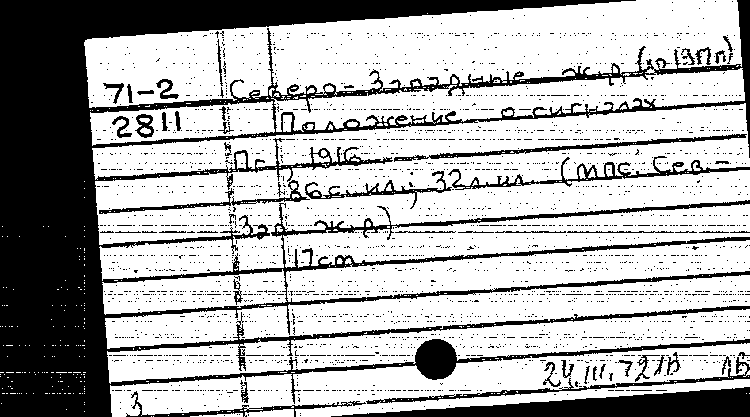 71-2 Северо-Западные ж.д. (до 1917 г)
2811 Положение о сигналах
Пг., 1916.
86 с. ил.; 32 л. ил. (МПС. Сев.-
Зап. ж.д.)
17 cm.
24.III.72
3